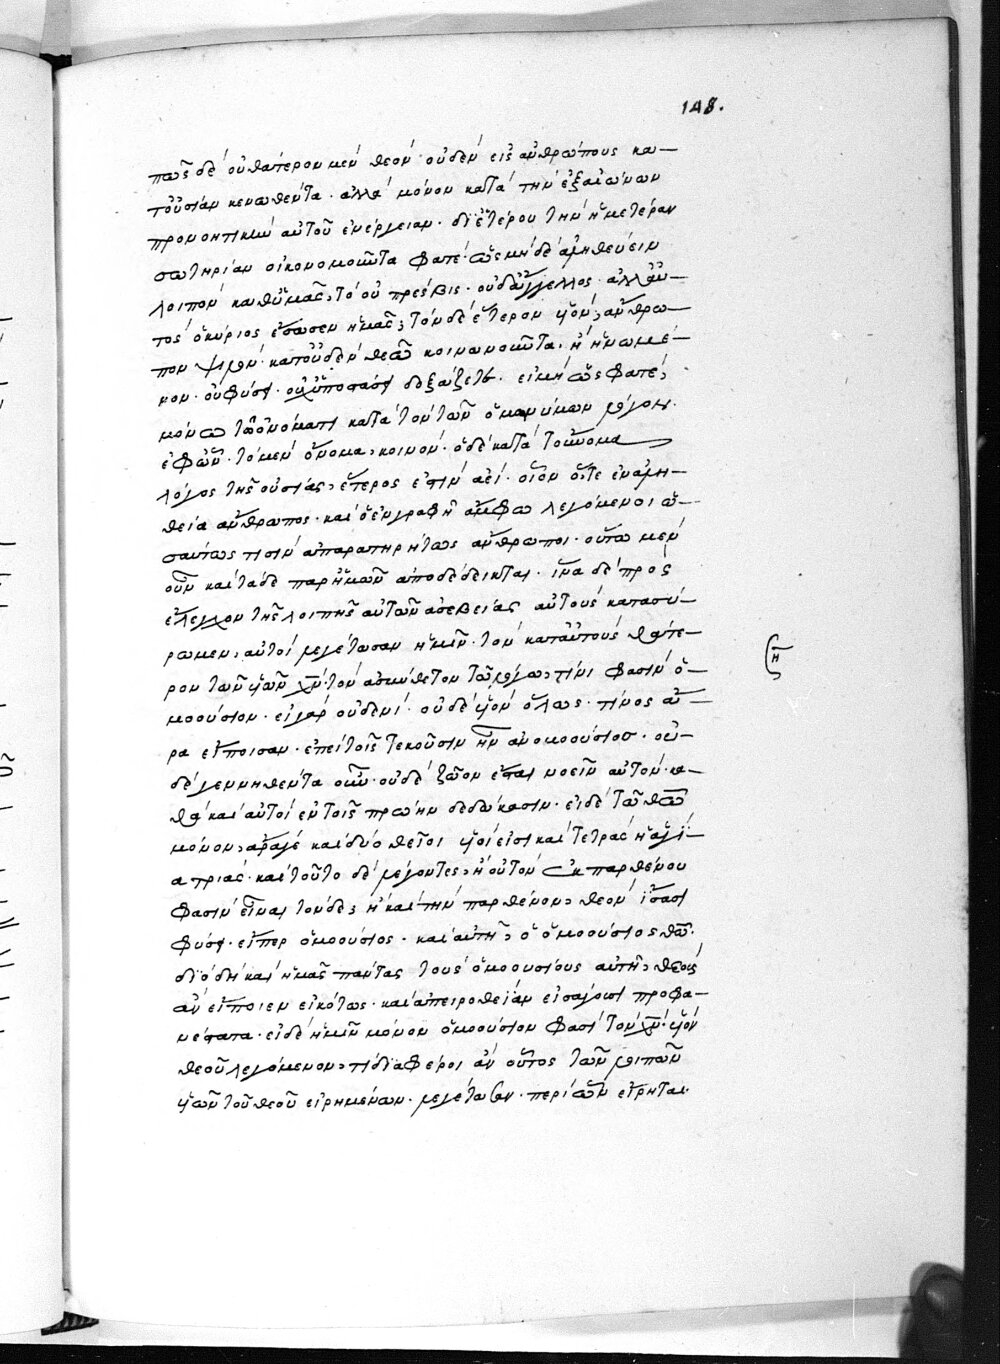 148.
πῶς δὲ οὐ θάτερον μὲν θεὸν οὐδὲν εἰς ἀνθρώπους κα—
τ' οὐσίαν κενωθέντα · ἀλλὰ μόνον κατὰ τὴν ἐξ αἰώνων
προνοητικὴν αὐτοῦ ἐνέργειαν · δι' ἑτέρου τὴν ἡμετέραν
σωτηρίαν οἰκονομοῦντα φατέ · ὡς μὴ δὲ ἀληθεύειν
λοιπὸν καθ' ὑμᾶς, τὸ οὐ πρέσβις · οὐδ' ἄγγελλος · ἀλλ' αὐ—
τὸς ὁ κύριος ἔσωσεν ἡμᾶς; τὸν δὲ ἕτερον υἱὸν, ἄνθρω—
πον ψιλὸν · κατ' οὐδὲν θεῶ κοινωνοῦντα, ἢ ἡνωμέ—
νον · οὐ φύσει · οὐχ ὑποστάσει δοξάζετε · εἰ μὴ ὡς φατὲ,
μόνω τῶ ὀνόματι κατὰ τὸν τῶν ὁμωνύμων λόγον ·
ἐφ' ὧν · τὸ μὲν ὄνομα, κοινὸν · ὁ δὲ κατὰ τοὔνομα
λόγος τῆς οὐσίας, ἕτερος ἐστὶν ἀεὶ · οἷον ὅ,τε ἐν ἀλη—
θεία ἄνθρωπος · καὶ ὁ ἐν γραφῆ ἄμφω λεγόμενοι ὡ—
σαύτως τισὶν ἀπαρατηρήτως ἄνθρωποι · οὕτω μὲν
οὖν καὶ τάδε παρ' ἡμῶν ἀποδέδεικται · ἵνα δὲ πρὸς
ἔλεγχον τῆς λοιπῆς αὐτῶν ἀσεβείας αὐτοὺς κατασύ—
ρωμεν, αὐτοὶ λεγέτωσαν ἡμῖν · τὸν κατ' αὐτοὺς θάτε—
ρον τῶν υἱῶν χν · τὸν ἀσύνθετον τῶ λόγω, τίνι φασὶν ὁ—
μοούσιον · εἰ γὰρ οὐδενὶ · οὐδὲ υἱὸν ὅλως · τίνος ἄ—
ρα εἴποισαν · ἐπεὶ τοῖς τεκοῦσιν ἦν ἂν ὁμοούσιος · οὐ—
δὲ γεννηθέντα οὖν · οὐδὲ ζῶον ἔσται νοεῖν αὐτὸν · κα—
θὰ καὶ αὐτοὶ ἐν τοῖς πρώην δεδώκασιν · εἰ δὲ τῶ θεῶ
μόνον, ἆρά γε καὶ δύο θεῖοι υἱοί εἰσι καὶ τετρὰς ἡ ἁγί—
α τριὰς · καὶ τοῦτο δὲ λέγοντες, ἢ οὐ τὸν ἐκ παρθένου
φασὶν εἶναι τόνδε, ἢ καὶ τὴν παρθένον, θεὸν ἴσασι
φύσει · εἴπερ ὁμοούσιος · καὶ αὐτῆ, ὁ ὁμοούσιος θεῶ ·
διὸ δὴ καὶ ἡμᾶς πάντας τοὺς ὁμοουσίους αὐτῆ, θεοὺς
ἂν εἴποιεν εἰκότως · καὶ ἀπειροθεΐαν εἰσάγουσι προφα—
νέστατα · εἰ δὲ ἡμῖν μόνον ὁμοούσιον φασὶ τὸν χν · υἱὸν
θεοῦ λεγόμενον, τί διαφέροι ἂν οὗτος τῶν λοιπῶν
υἱῶν τοῦ θεοῦ εἰρημένων · λεγέτωσαν · περὶ ὧν εἴρηται